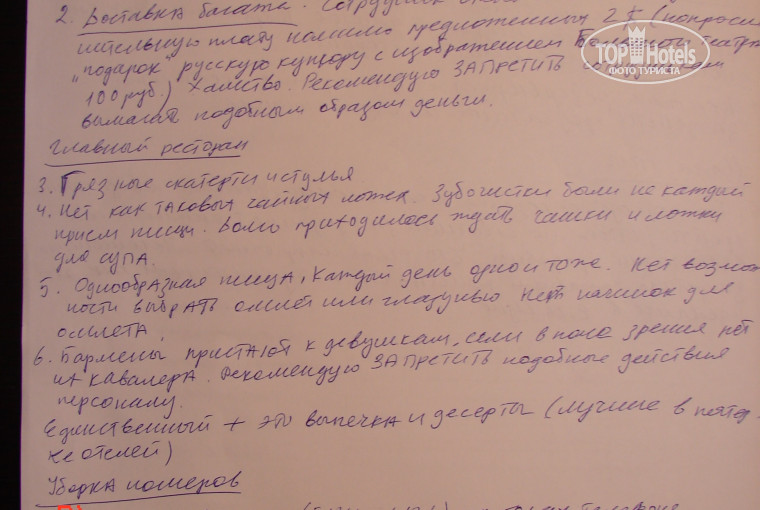 2. Доставка багажа. Сотрудник
ительную плату помимо предложенных 2$ (попросил
"подарок" русскую купюру с изображением Большой театр
100 руб.) Хамство. Рекомендую ЗАПРЕТИТЬ сотрудникам
вымогать подобным образом деньги.
TOP Hotels
ФОТО ТУРИСТА
Главный ресторан
3. Грязные скатерти и стулья
4. Нет как таковых чайных ложек. Зубочистки были не каждый
прием пищи. Долго приходилось ждать чашки и ложки
для супа.
5. Однообразная пища, каждый день одно и тоже. Нет возмож
ности выбрать омлет или глазунью. Нет начинок для
омлета.
6. Бармены пристают к девушкам, если в поле зрения нет
их кавалера. Рекомендую ЗАПРЕТИТЬ подобные действия
персоналу.
Единственный + это выпечка и десерты (лучшие в пятёр-
ке отелей)
Уборка номеров